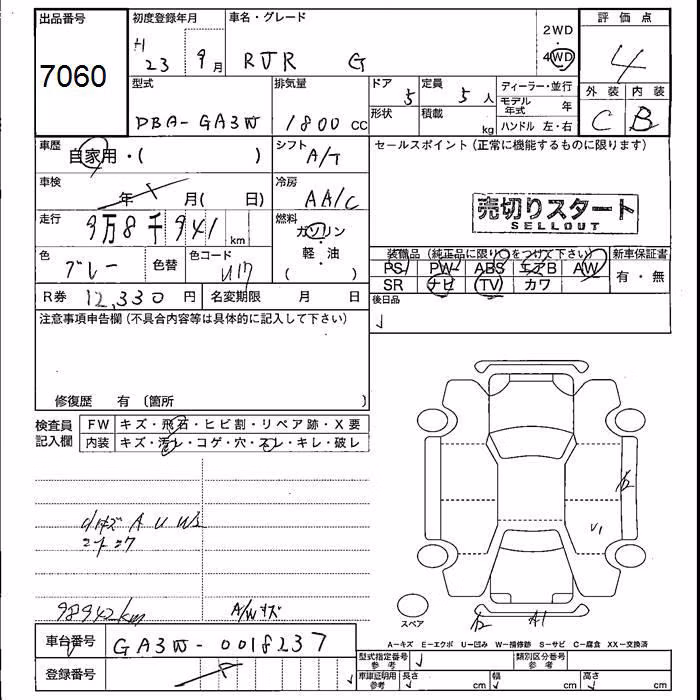 出品番号
7060
初度登録年月
H 23 9月
車名・グレード
RVR G
2WD
4WD
評価点
4
外装 内装
C B
型式
DBA-GA3W
排気量
1800 cc
ドア 5
形状
定員 5人
積載 kg
ディーラー・並行
モデル年式 年
ハンドル 左・右
車歴
自家用・( )
シフト
A/T
セールスポイント (正常に機能するものに限ります)
車検
年 月( 日)
冷房
AA/C
売切りスタート
SELLOUT
走行
9万8千941 km
燃料
ガソリン
軽・油
( )
色
グレー
色替
色コード
U17
装備品 (純正品に限り○をつけて下さい)
PS PW ABS エアB AW
SR ナビ TV カワ
新車保証書
有・無
R券 12,330円
名変期限 月 日
後日品
注意事項申告欄 (不具合内容等は具体的に記入して下さい)
修復歴 有 〔箇所 〕
検査員記入欄
FW キズ・飛石・ヒビ割・リペア跡・X要
内装 キズ・汚レ・コゲ・穴・スレ・キレ・破レ
小キズ A U W2
98942km
A/Wキズ
V1
A1
スペア
A-キズ E-エクボ U-凹み W-補修跡 S-サビ C-腐食 XX-交換済
車台番号
GA3W-0018237
登録番号
型式指定番号 参考
類別区分番号 参考
車庫証明用 参考
長さ cm
幅 cm
高さ cm